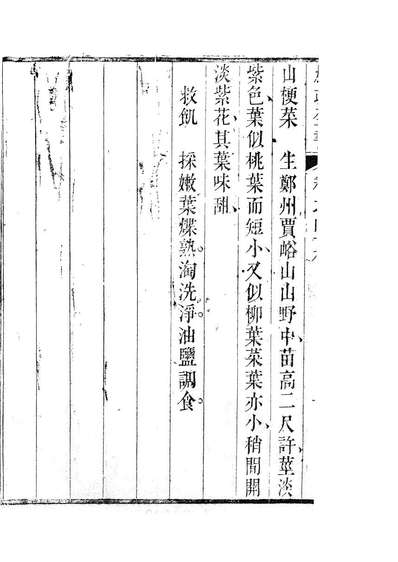 山梗菜　生鄭州賈峪山山野中、苗高二尺許、莖淡
紫色、葉似桃葉而短小、又似柳葉菜葉亦小、稍間開
淡紫花、其葉味甜、
救飢　採嫩葉煠熟淘洗淨、油鹽調食。